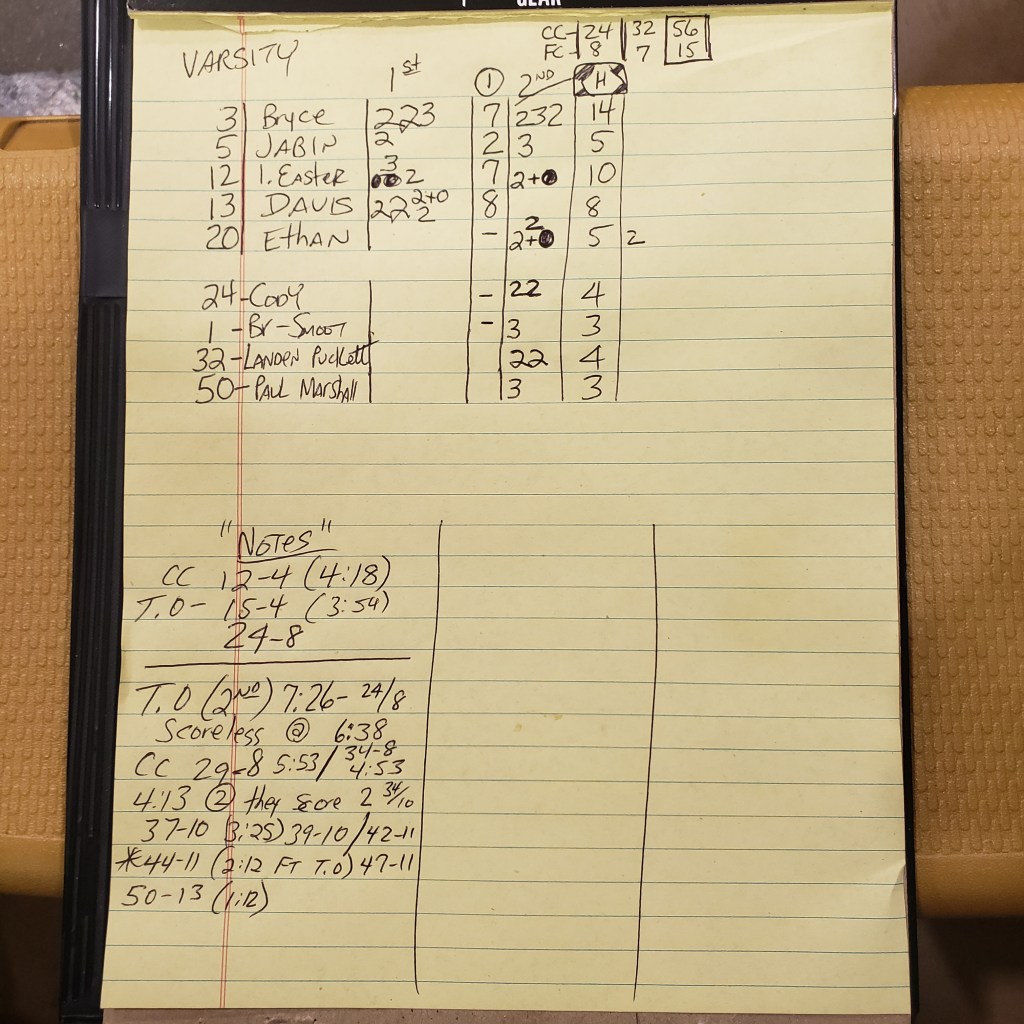 GEAR
CC- 24 32 56
FC- 8 7 15
VARSITY 1st 1 2ND H
3 Bryce 223 7 232 14
5 JABIN 2 2 3 5
12 I. EASTER 3 2 7 2+ 10
13 DAVIS 22 2+0 2 8 8
20 EthAN - 2+ 2 5 2
24-CODY - 22 4
1 - Br-Smoot - 3 3
32-LANDEN Puckett 22 4
50-PAUL MARShAll 3 3
"Notes"
CC 12-4 (4:18)
T.O- 15-4 (3:54)
24-8
T.O (2ND) 7:26- 24/8
Scoreless @ 6:38
CC 29-8 5:53/ 34-8 4:53
4:13 2 they score 2 34/10
37-10 (3:25) 39-10/42-11
*44-11 (2:12 FT T.O) 47-11
50-13 (1:12)